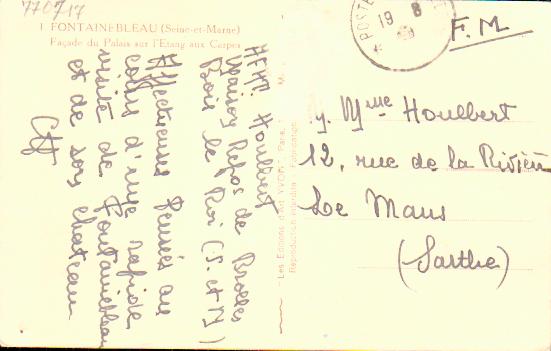 770717
1 FONTAINEBLEAU (Seine-et-Marne)
Façade du Palais sur l'Etang aux Carpes
Houlbert
Maison Repos de Brolles
Bois le Roi (S. et M)
Affectueuses pensées au
cours d'une rapide
visite de Fontainebleau
et de son chateau
Les Editions d'Art YVON, Paris
Reproduction interdite
POSTE
19 8
F.M
Mme Houlbert
12, rue de la Rivière
Le Mans
(Sarthe)